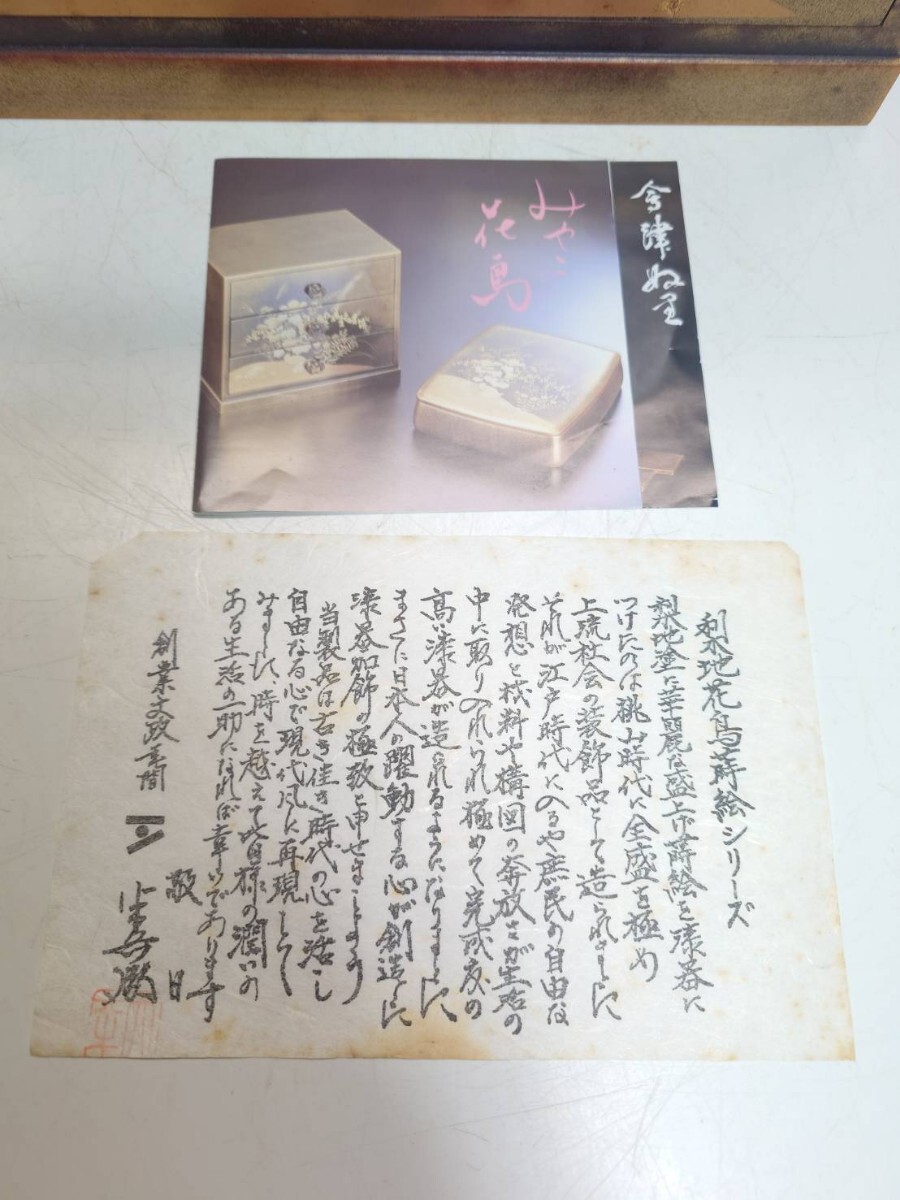 会津ぬり
みやこ
花鳥
梨地花鳥蒔絵シリーズ
梨地塗に華麗な盛上げ蒔絵を漆器に
つけたのは桃山時代に全盛を極め
上流社会の装飾品として造られました
それが江戸時代に入るや庶民の自由な
発想と材料や構図の奔放さが生活の
中に取り入れられ極めて完成度の
高い漆器が造られるようになりました
まさに日本人の躍動する心が創造した
漆器加飾の極致と申せましょう
当製品は古き佳き時代の心を活し
自由なる心で現代風に再現して
みました、時を越えて皆様の潤いの
ある生活の一助になれば幸いであります
敬白
創業文政年間